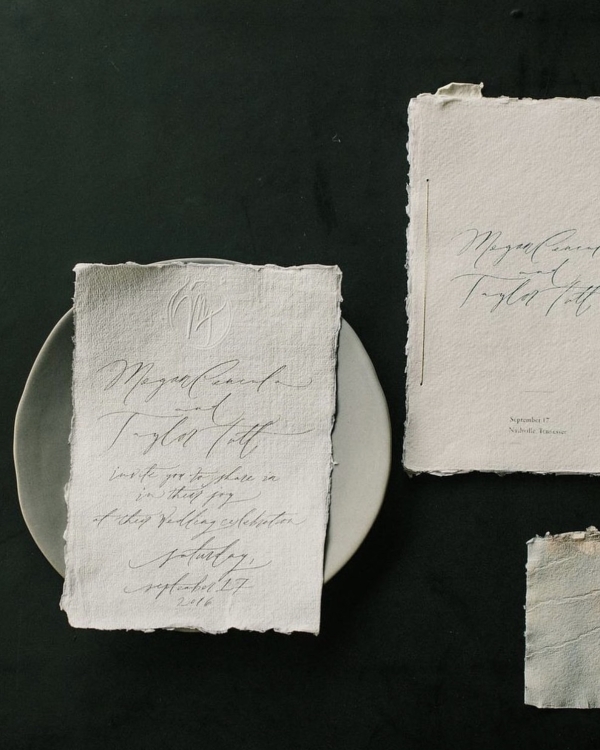 Megan
and
Taylor
invite you to share in
in their joy
at their wedding celebration
saturday,
september 17
2016
Megan
and
Taylor
September 17
Nashville Tennessee